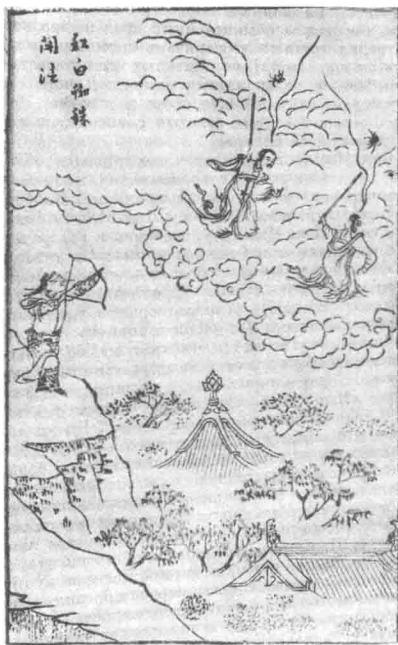 紅白蜘蛛
法